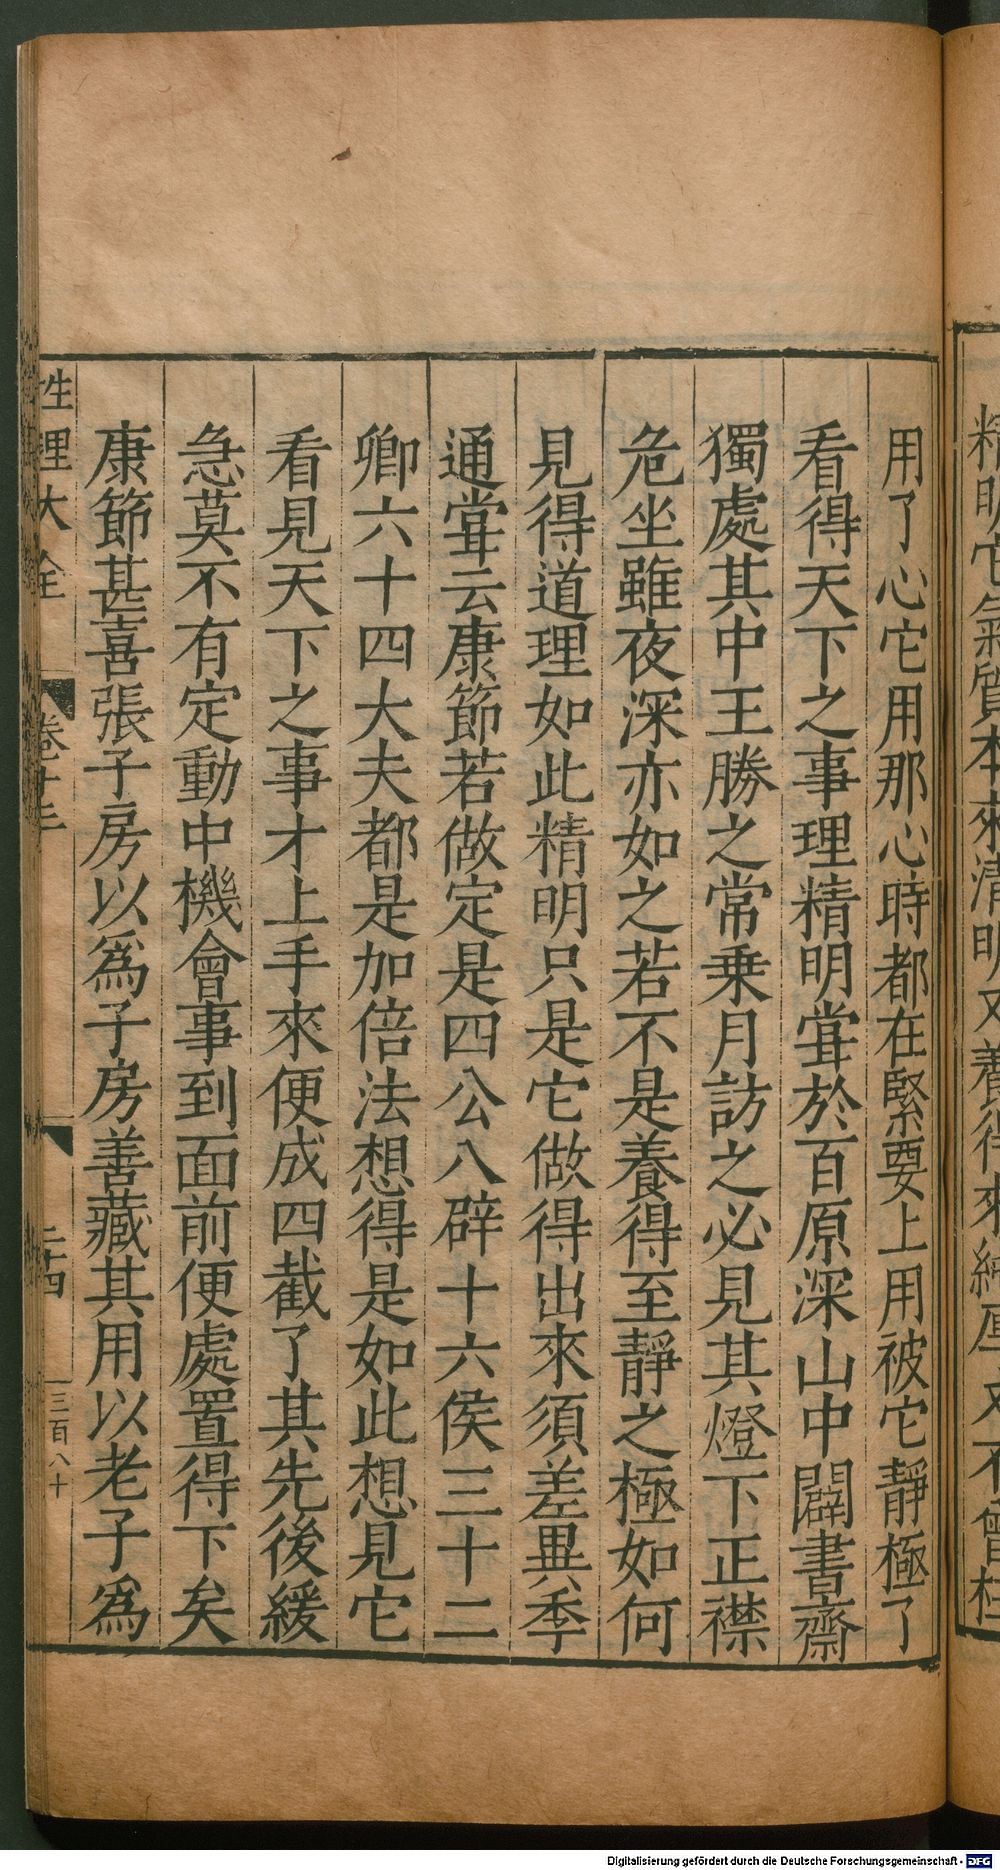 精明它氣質本來清明又養得來純厚又不曾枉
用了心它用那心時都在緊要上用被它靜極了
看得天下之事理精明甞於百原深山中闢書齋
獨處其中王勝之常乗月訪之必見其燈下正襟
危坐雖夜深亦如之若不是養得至靜之極如何
見得道理如此精明只是它做得出來須差異季
通甞云康節若做定是四公八辟十六侯三十二
卿六十四大夫都是加倍法想得是如此想見它
看見天下之事才上手來便成四截了其先後緩
急莫不有定動中機會事到面前便處置得下矣
康節甚喜張子房以爲子房善藏其用以老子爲
性理大全 卷十三 二十四 三百八十
Digitalisierung gefördert durch die Deutsche Forschungsgemeinschaft - DFG